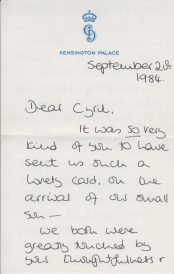 KENSINGTON PALACE
September 2
1984.
Dear Cyril,
It was so very
kind of you to have
sent us such a
lovely card, on the
arrival of our small
son –
we both were
greatly touched by
your thoughtfulness &